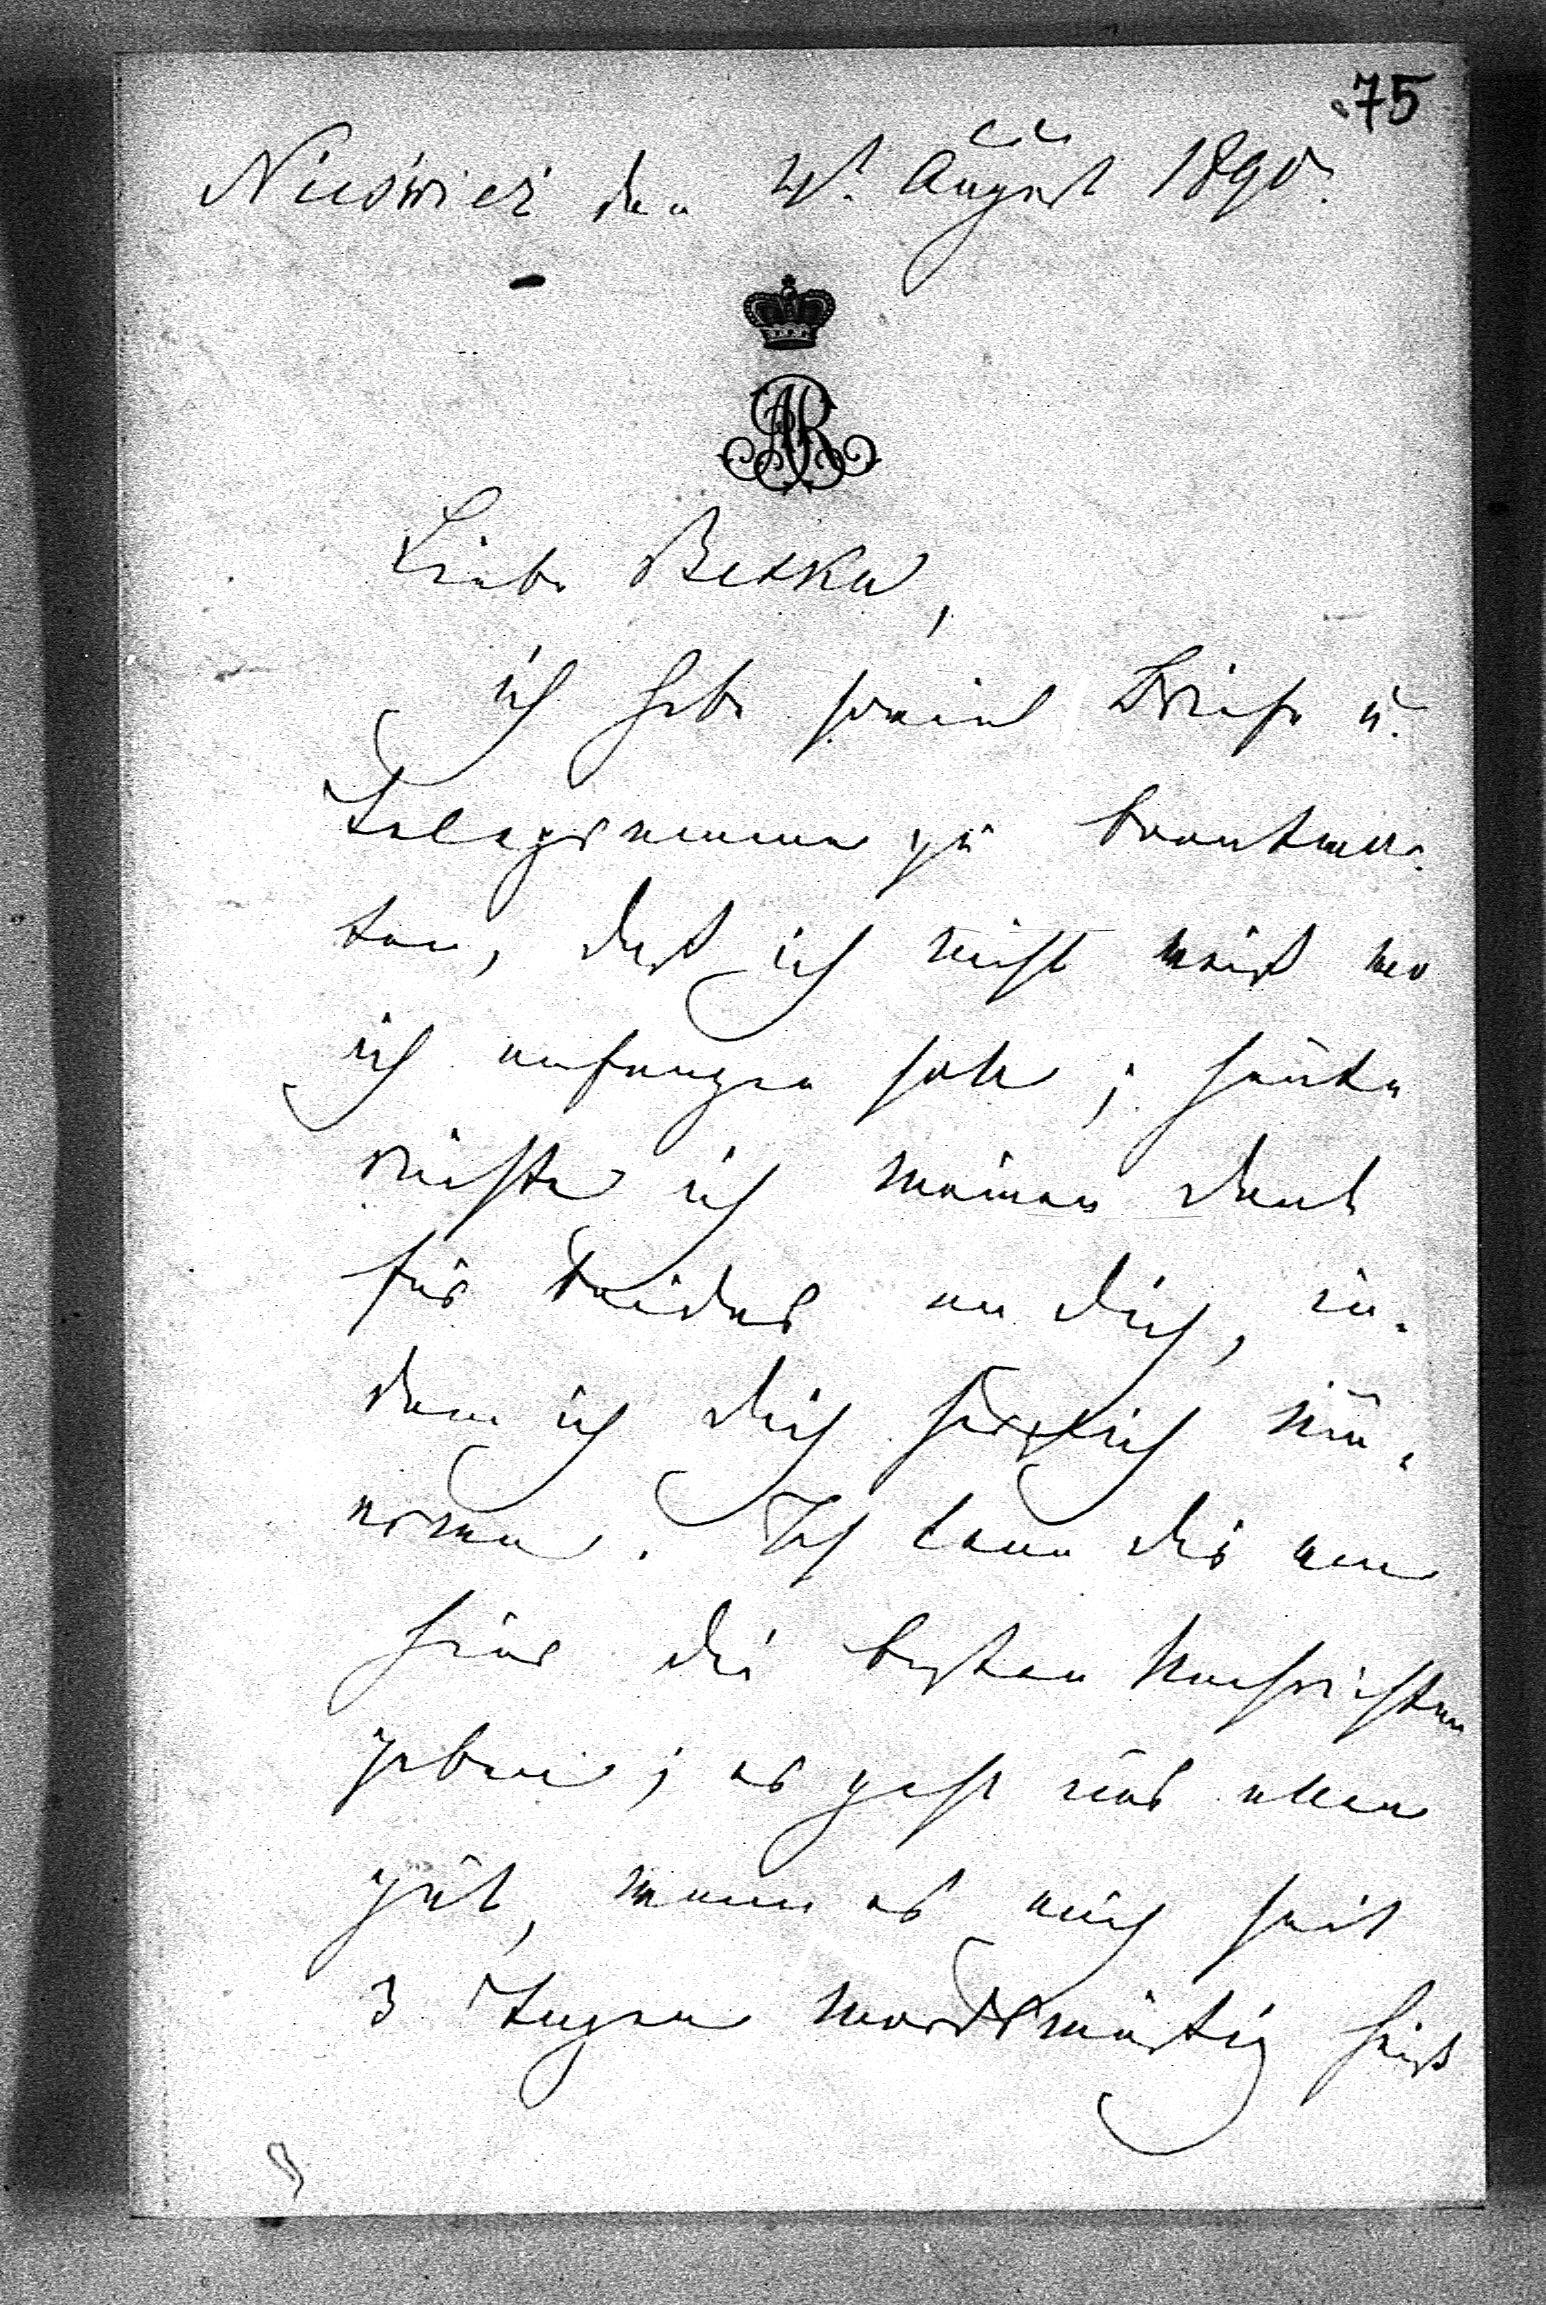 75
Nieśwież den 4t. August 1890.
AR
Liebe Bexka,
ich habe soviel Briefe u.
Telegramme zu beantwor-
ten, daß ich nicht weiß wo
ich anfangen soll; heute
richte ich meinen Dank
für Beides an Dich, in-
dem ich Dich herzlich um-
arme. Ich kann Dir von
hier die besten Nachrichten
geben; es geht uns allen
gut, wenn es auch seit
3 Tagen mordsmäßig heiß